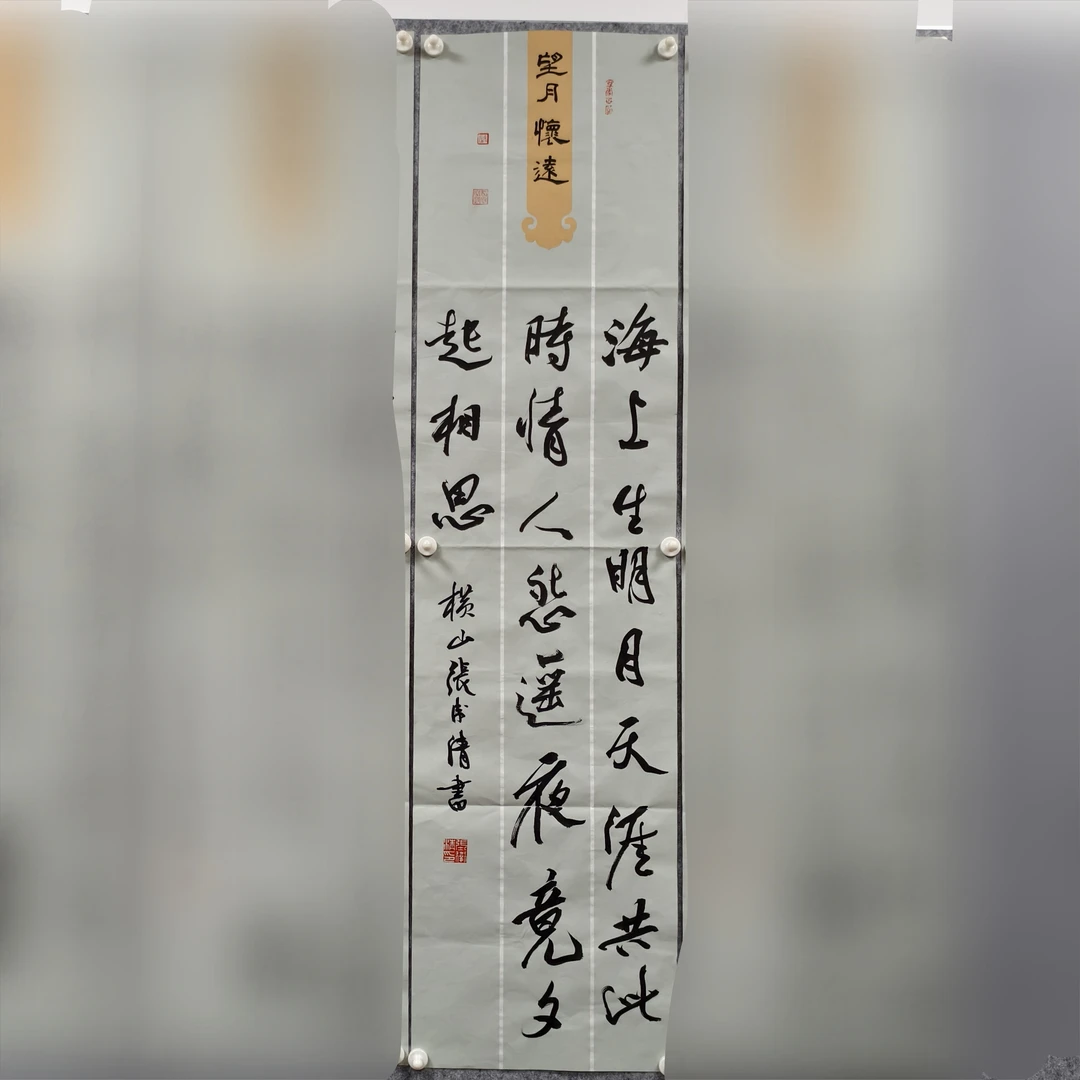 望月懷遠
海上生明月天涯共此
時情人怨遥夜竟夕
起相思
橫山張成清書